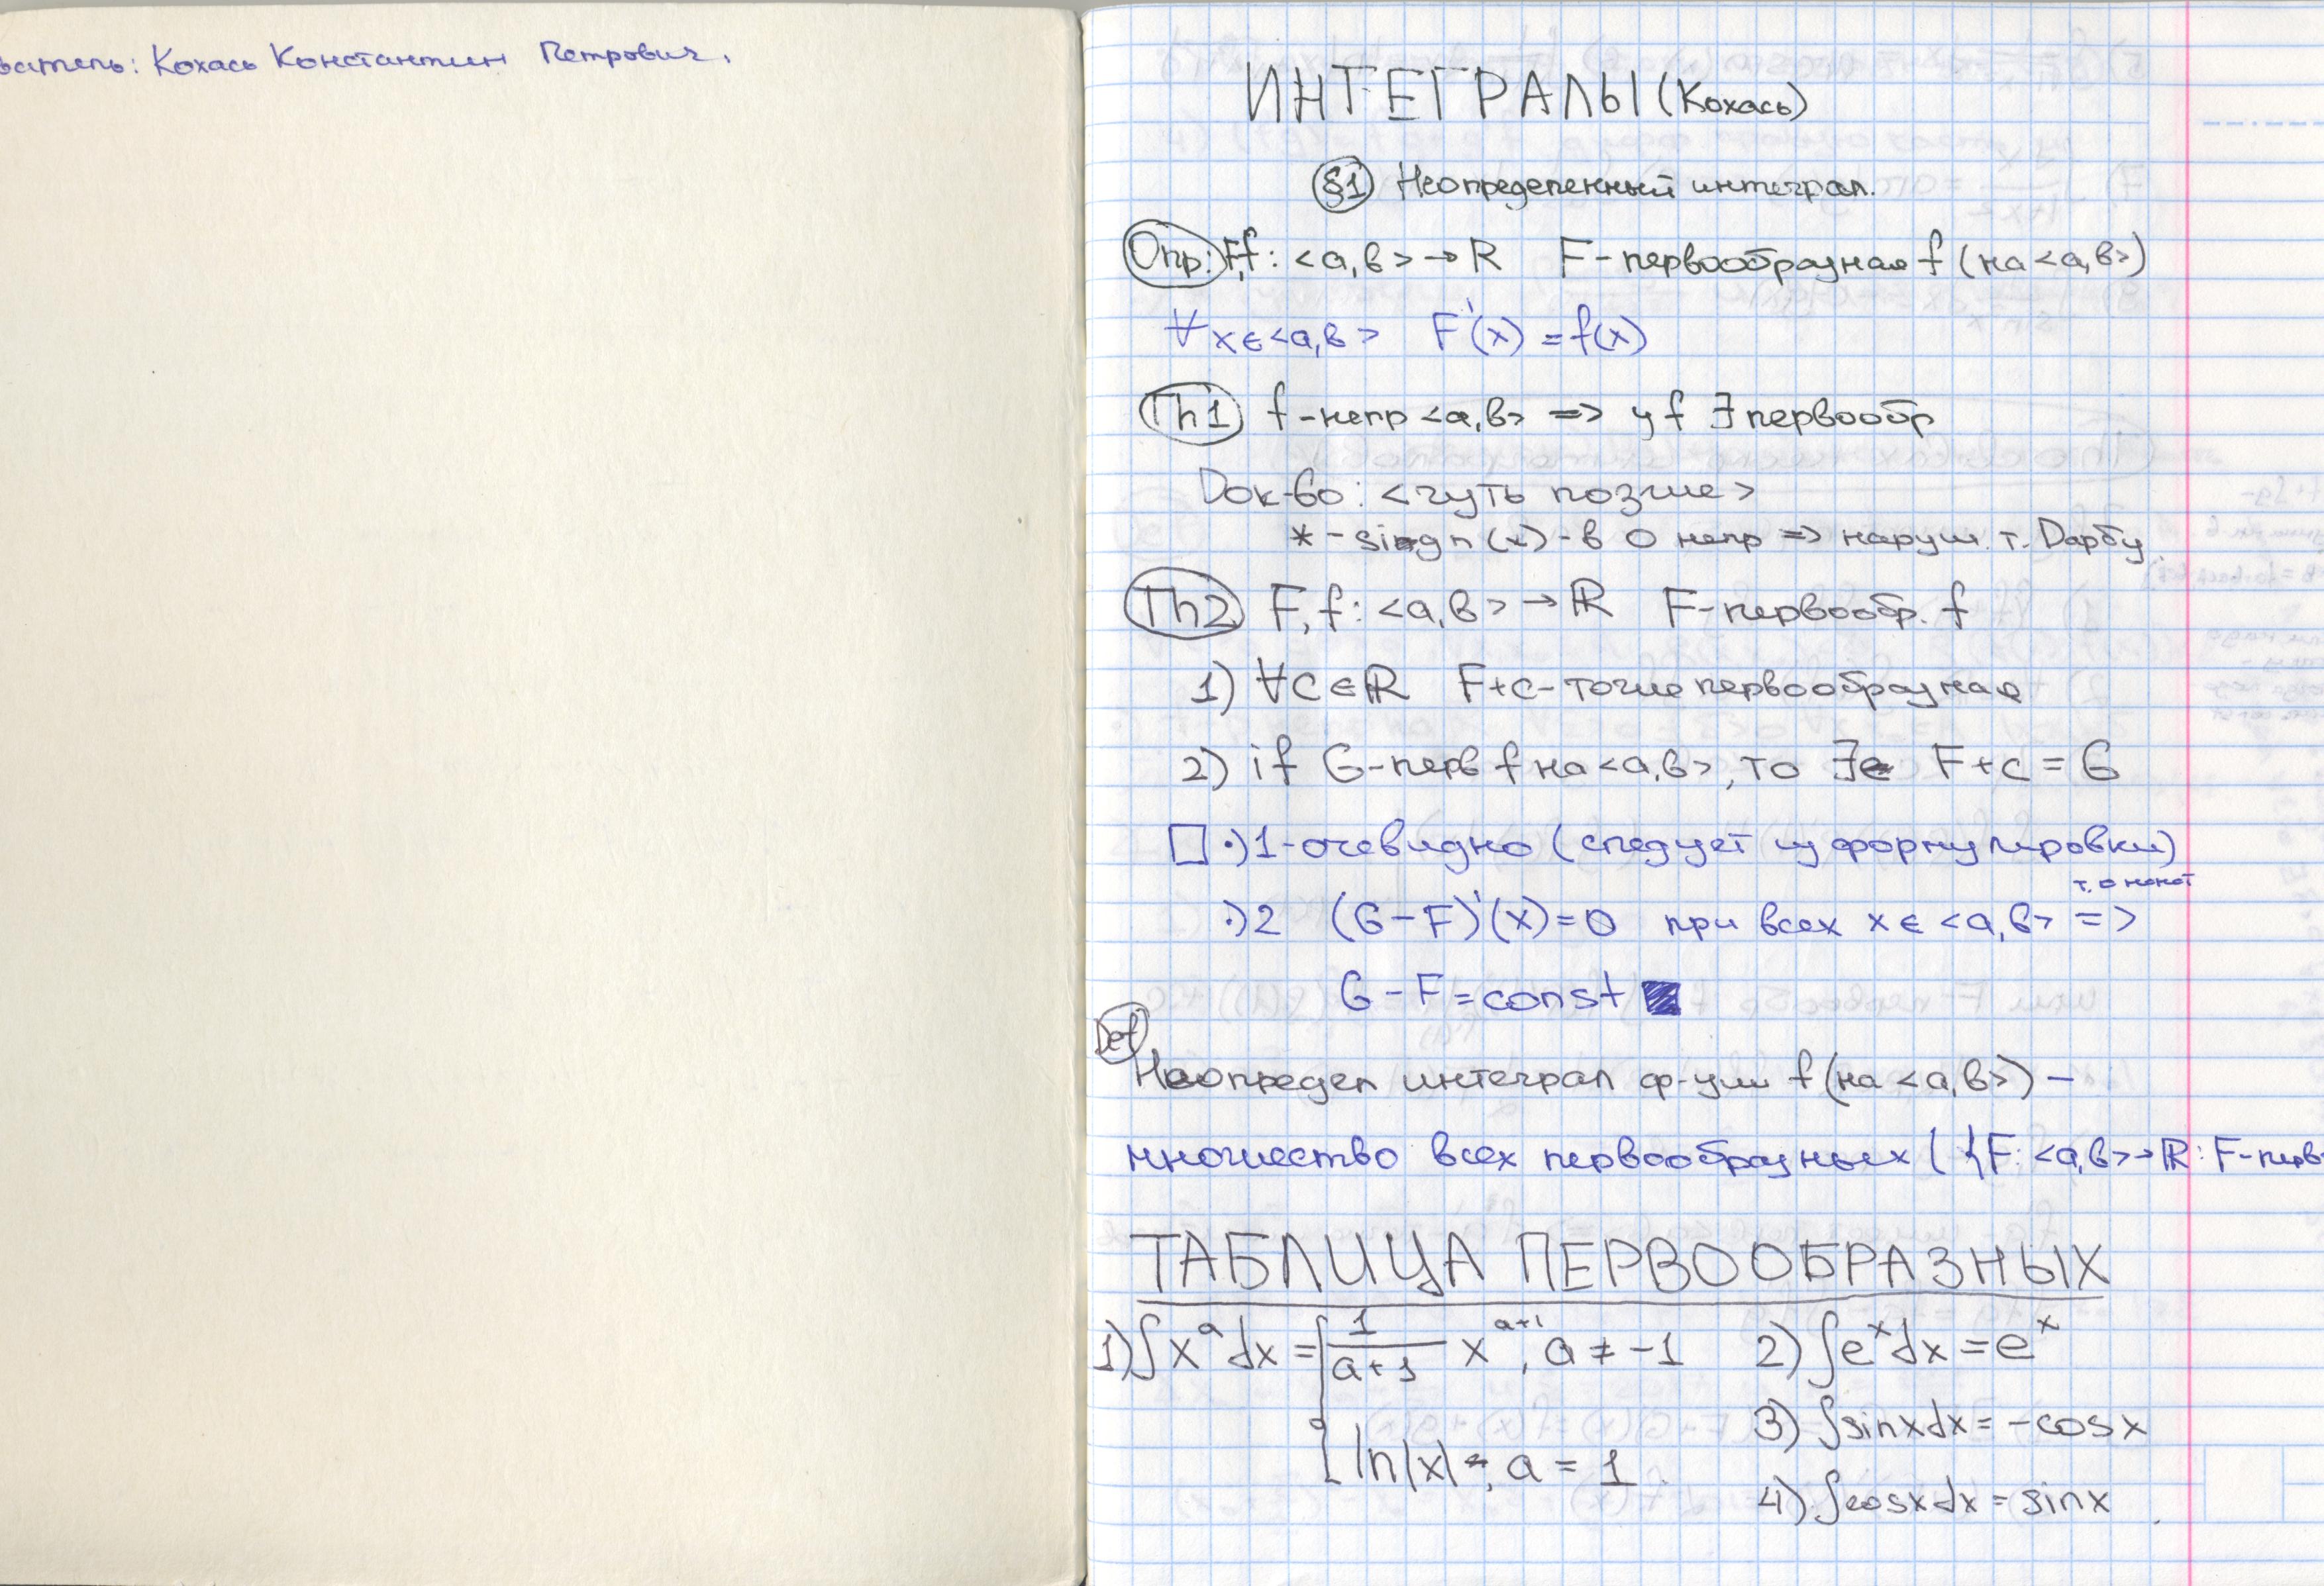 ватель: Кохась Константин Петрович.
ИНТЕГРАЛЫ (Кохась)
§1 Неопределенный интеграл.
Опр: F,f: <a,b> → ℝ F - первообразная f (на <a,b>)
∀x∈<a,b> F'(x) = f(x)
Th1 f - непр <a,b> => у f ∃ первообр
Док-во: <чуть позже>
* - singn(x) - в 0 непр => наруш. т. Дарбу.
Th2 F, f: <a,b> → ℝ F - первообр. f
1) ∀c∈ℝ F+c - тоже первообразная
2) if G - перв f на <a,b>, то ∃c F+c = G
□ •) 1 - очевидно (следует из формулировки)
•) 2 (G-F)'(x) = 0 при всех x∈<a,b> =>
G - F = const ■
Def
Неопредел интеграл ф-ции f (на <a,b>) -
множество всех первообразных ( {F: <a,b> → ℝ : F - перв
ТАБЛИЦА ПЕРВООБРАЗНЫХ
1) ∫x^a dx = { 1/(a+1) x^(a+1), a ≠ -1 2) ∫e^x dx = e^x
3) ∫sinxdx = -cosx
ln|x|, a = 1
4) ∫cosxdx = sinx